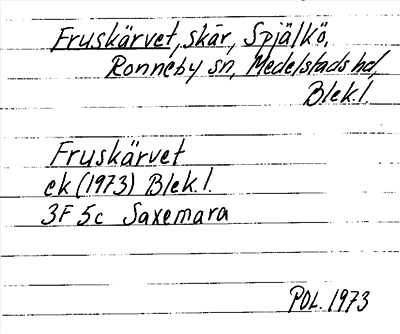 Fruskärvet, skär, Spjälkö,
Ronneby sn, Medelstads hd,
Blek.l.
Fruskärvet
ek (1973) Blek.l.
3F 5c Saxemara
POL. 1973